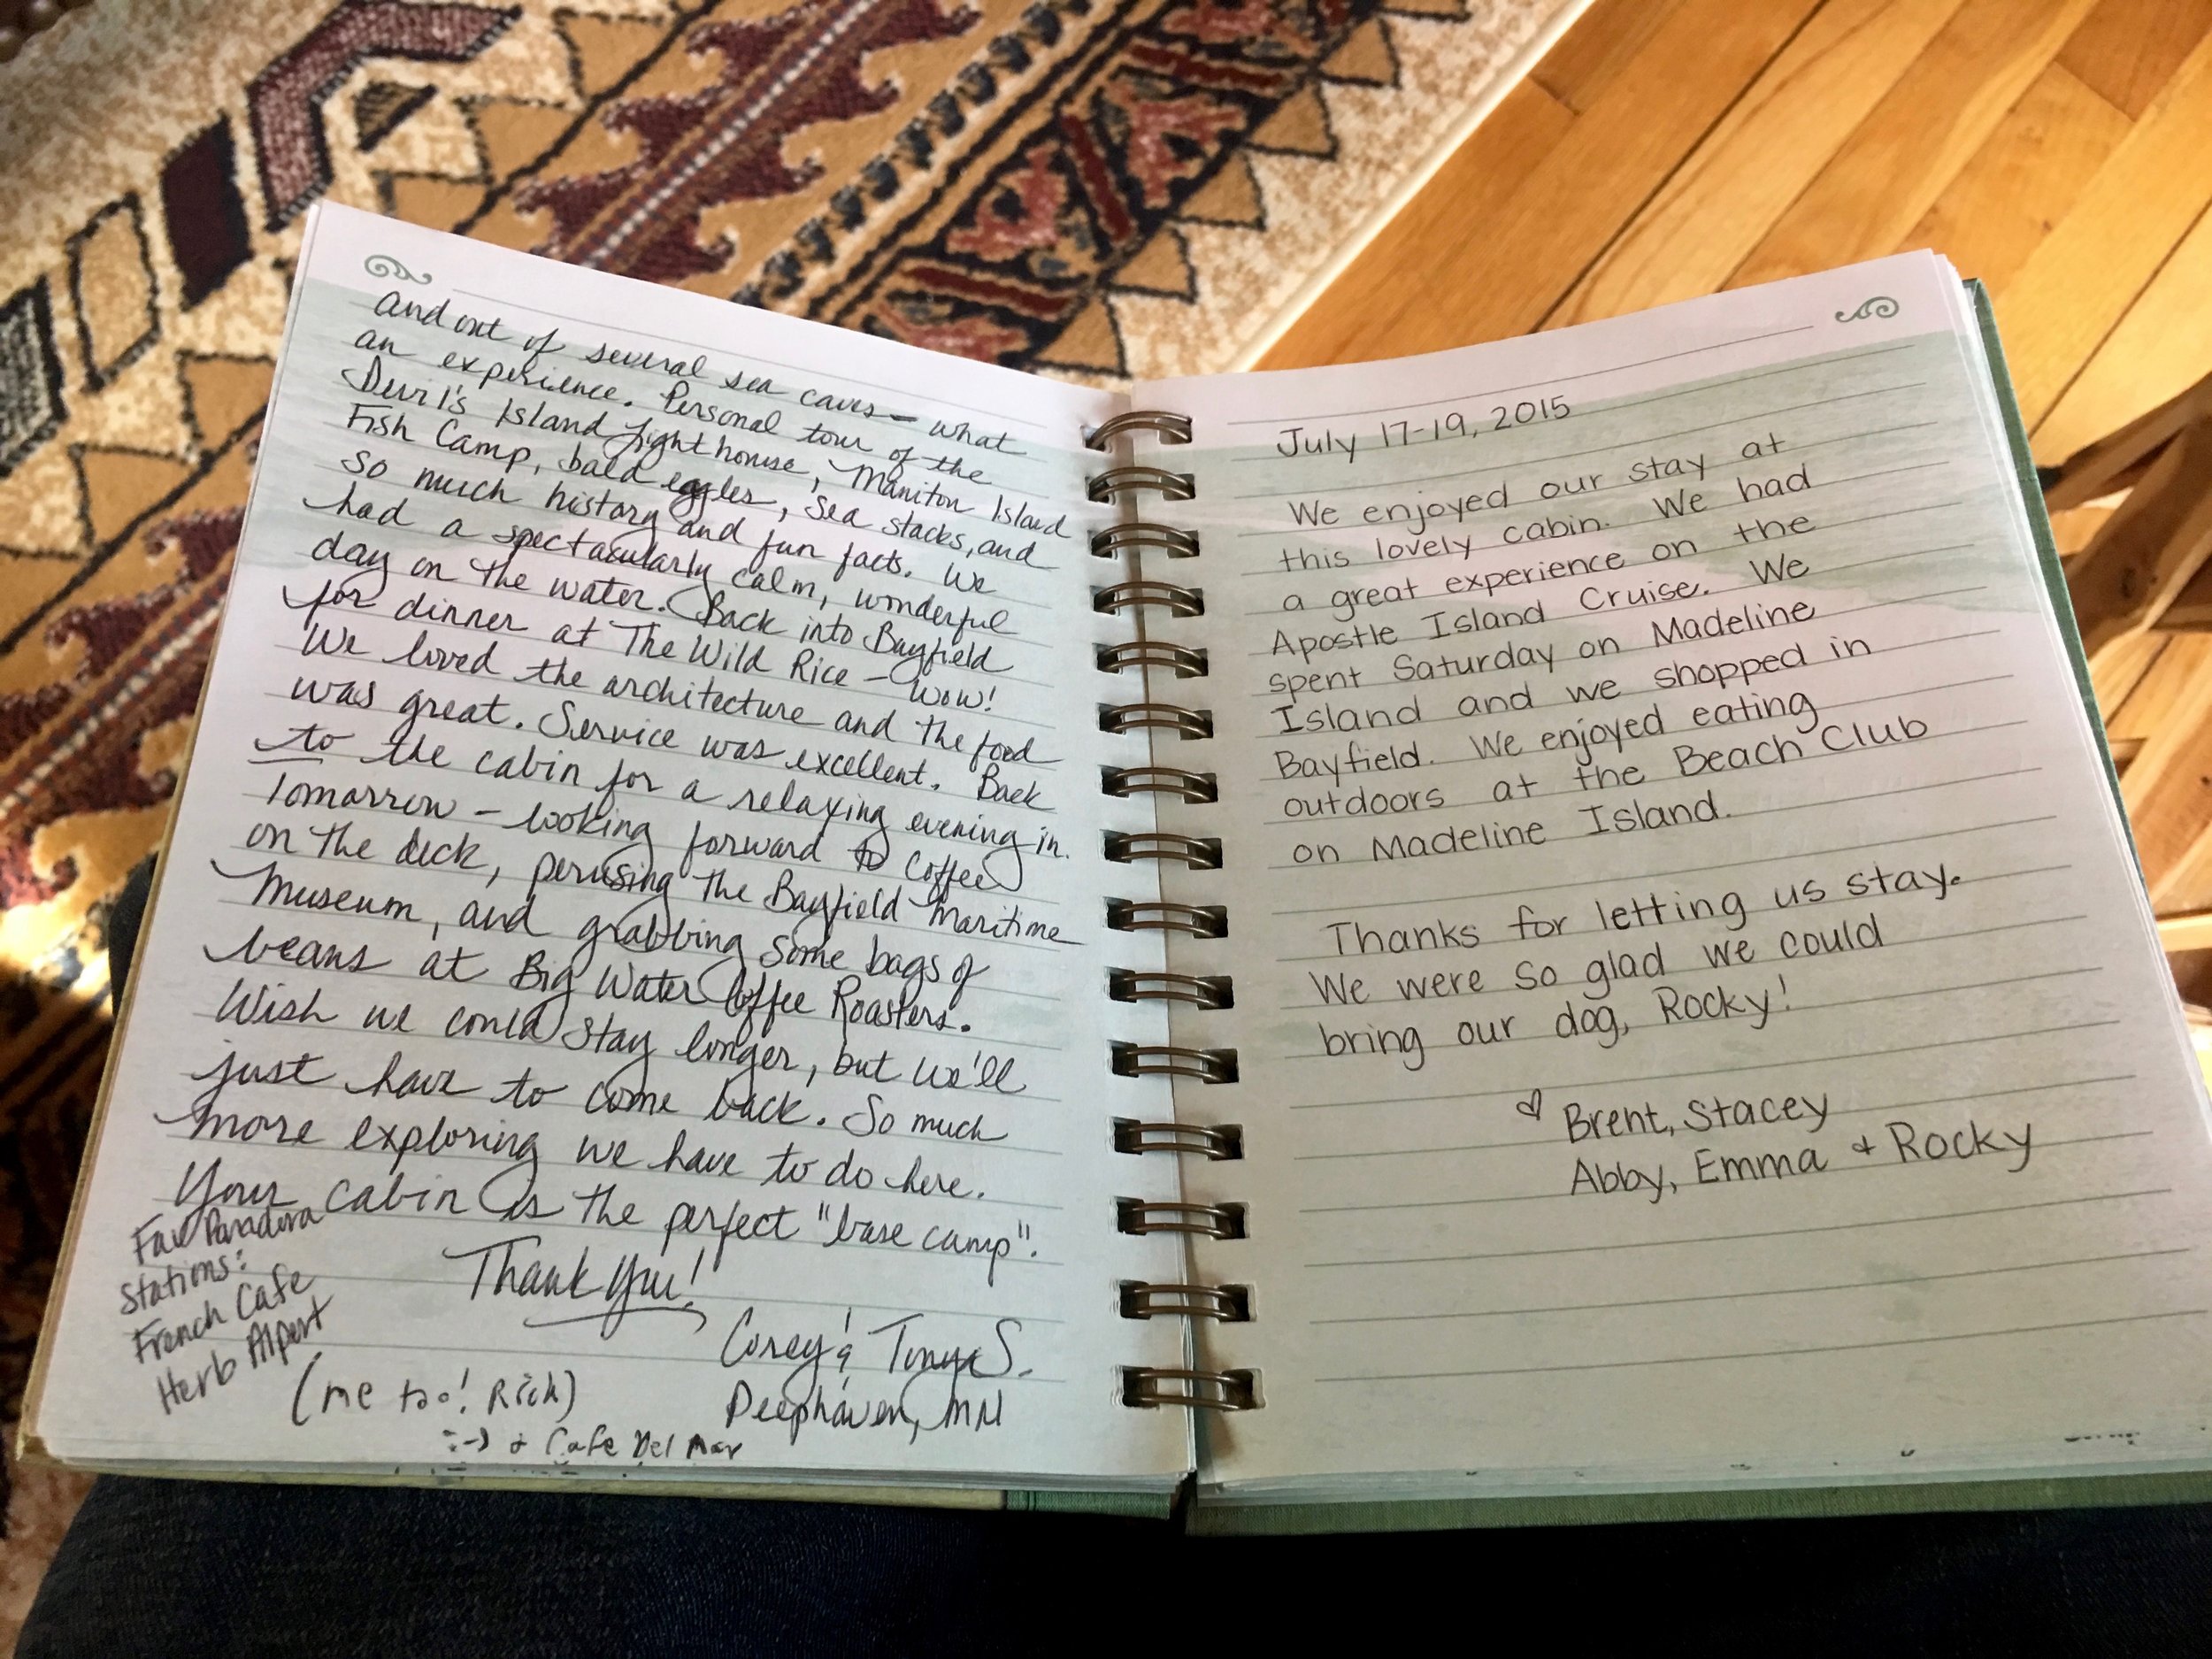 and out of several sea caves — what
an experience. Personal tour of the
Devil's Island Lighthouse, Manitou Island
Fish Camp, bald eagles, sea stacks, and
so much history and fun facts. We
had a spectacularly calm, wonderful
day on the water. Back into Bayfield
for dinner at The Wild Rice — Wow!
We loved the architecture and the food
was great. Service was excellent. Back
to the cabin for a relaxing evening in.
Tomorrow — looking forward to coffee
on the deck, perusing the Bayfield Maritime
Museum, and grabbing some bags of
beans at Big Water Coffee Roasters.
Wish we could stay longer, but we'll
just have to come back. So much
more exploring we have to do here.
Your cabin is the perfect "base camp".
Thank you!
Corey & Tony S.
Deephaven, MN
Fav Pandora
Stations:
French Cafe
Herb Alpert
(me too! Rich)
:-) + Cafe Del Mar
July 17-19, 2015
We enjoyed our stay at
this lovely cabin. We had
a great experience on the
Apostle Island Cruise. We
spent Saturday on Madeline
Island and we shopped in
Bayfield. We enjoyed eating
outdoors at the Beach Club
on Madeline Island.
Thanks for letting us stay.
We were so glad we could
bring our dog, Rocky!
♡ Brent, Stacey
Abby, Emma + Rocky